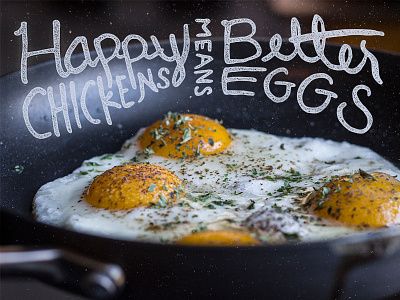 Happy CHICKENS
MEANS
Better EGGS